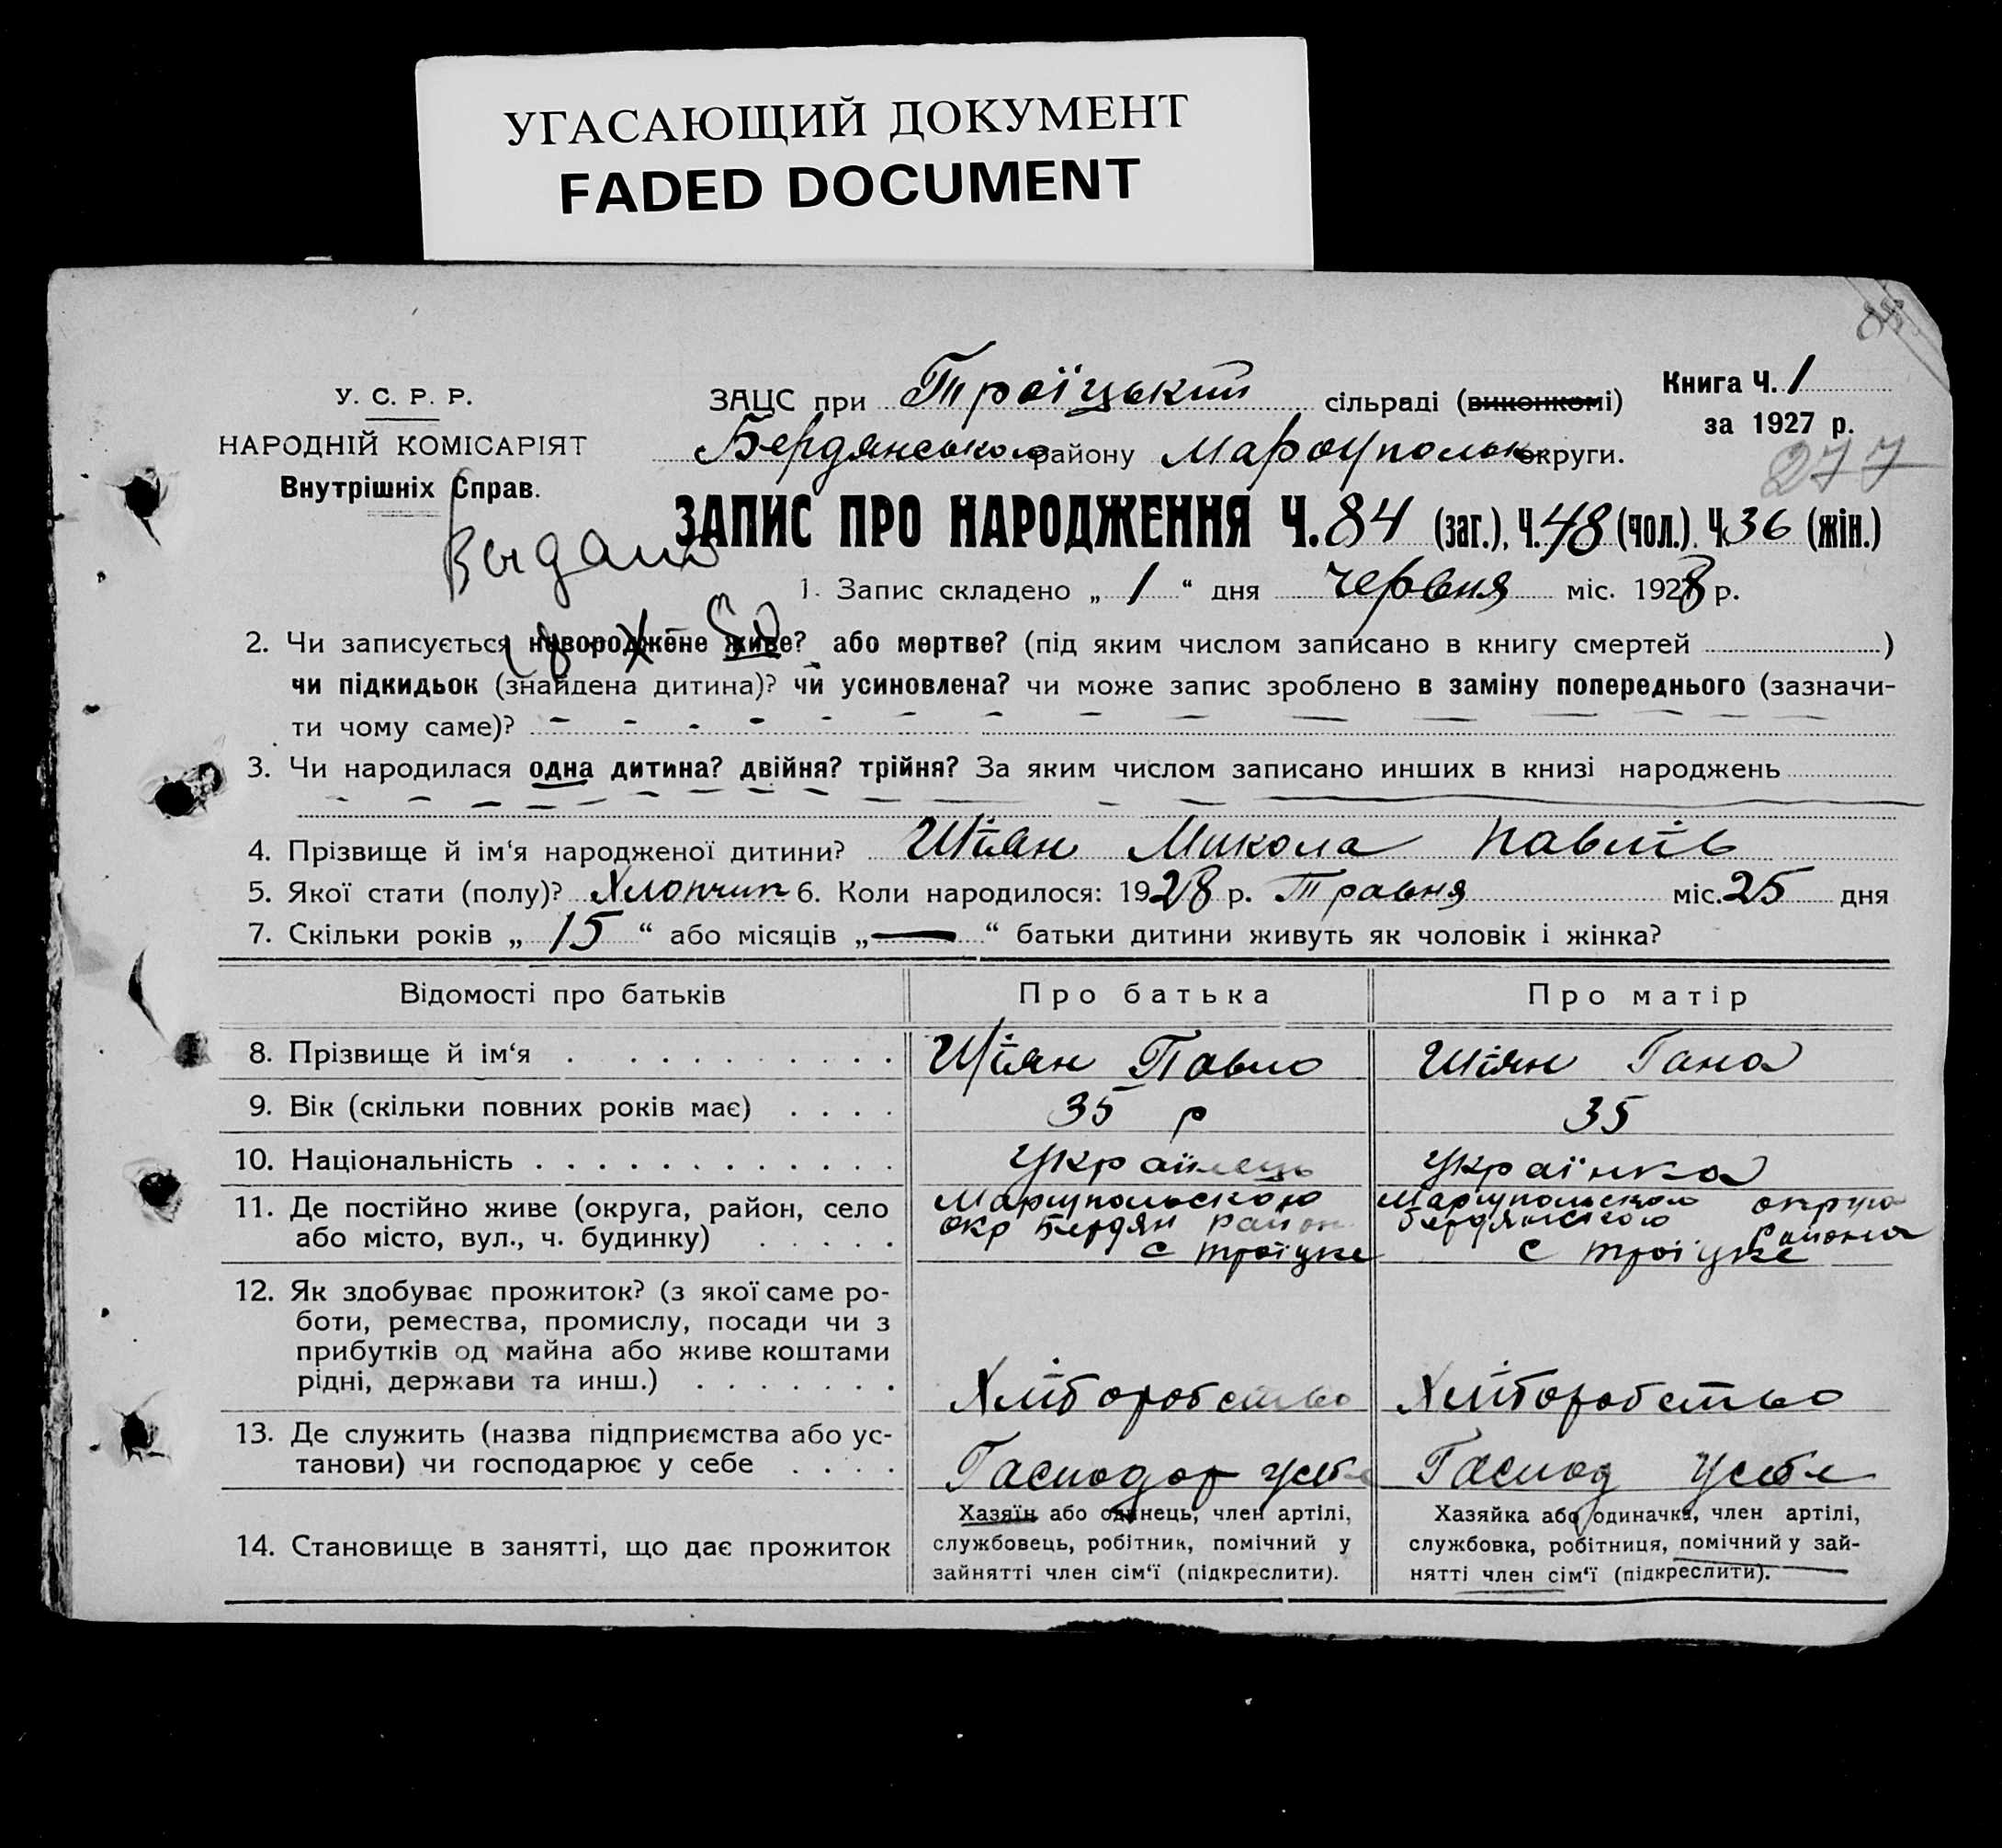 УГАСАЮЩИЙ ДОКУМЕНТ
FADED DOCUMENT
У. С. Р. Р.
НАРОДНІЙ КОМІСАРІЯТ
Внутрішніх Справ.
ЗАЦС при Троїцький сільраді (виконкомі)
Книга Ч. 1
за 1927 р.
Бердянського району Мароупольск округи.
277
ЗАПИС ПРО НАРОДЖЕННЯ Ч. 84 (заг.), Ч. 48 (чол.), Ч. 36 (жін.)
1. Запис складено „ 1 “ дня червня міс. 1928 р.
2. Чи записується новороджене живе? або мертве? (під яким числом записано в книгу смертей )
чи підкидьок (знайдена дитина)? чи усиновлена? чи може запис зроблено в заміну попереднього (зазначи-
ти чому саме)?
3. Чи народилася одна дитина? двійня? трійня? За яким числом записано инших в книзі народжень
4. Прізвище й ім‘я народженої дитини? Шіян Микола Павлів
5. Якої стати (полу)? Хлопчик 6. Коли народилося: 1928 р. Травня міс. 25 дня
7. Скільки років „ 15 “ або місяців „ — “ батьки дитини живуть як чоловік і жінка?
Відомості про батьків Про батька Про матір
8. Прізвище й ім‘я Шіян Павло Шіян Гана
9. Вік (скільки повних років має) 35 р 35
10. Національність Українець Українка
11. Де постійно живе (округа, район, село
або місто, вул., ч. будинку)
Маріупольского
окр Бердян район
с Троїцке
Маріупольского округа
Бердянского района
с Троїцке
12. Як здобуває прожиток? (з якої саме ро-
боти, ремества, промислу, посади чи з
прибутків од майна або живе коштами
рідні, держави та инш.)
Хліборобство Хліборобство
13. Де служить (назва підприємства або ус-
танови) чи господарює у себе
Господар усебе Господ усебе
14. Становище в занятті, що дає прожиток
Хазяїн або одинець, член артілі,
службовець, робітник, помічний у
зайнятті член сім‘ї (підкреслити).
Хазяйка або одиначка, член артілі,
службовка, робітниця, помічний у зай-
нятті член сім‘ї (підкреслити).